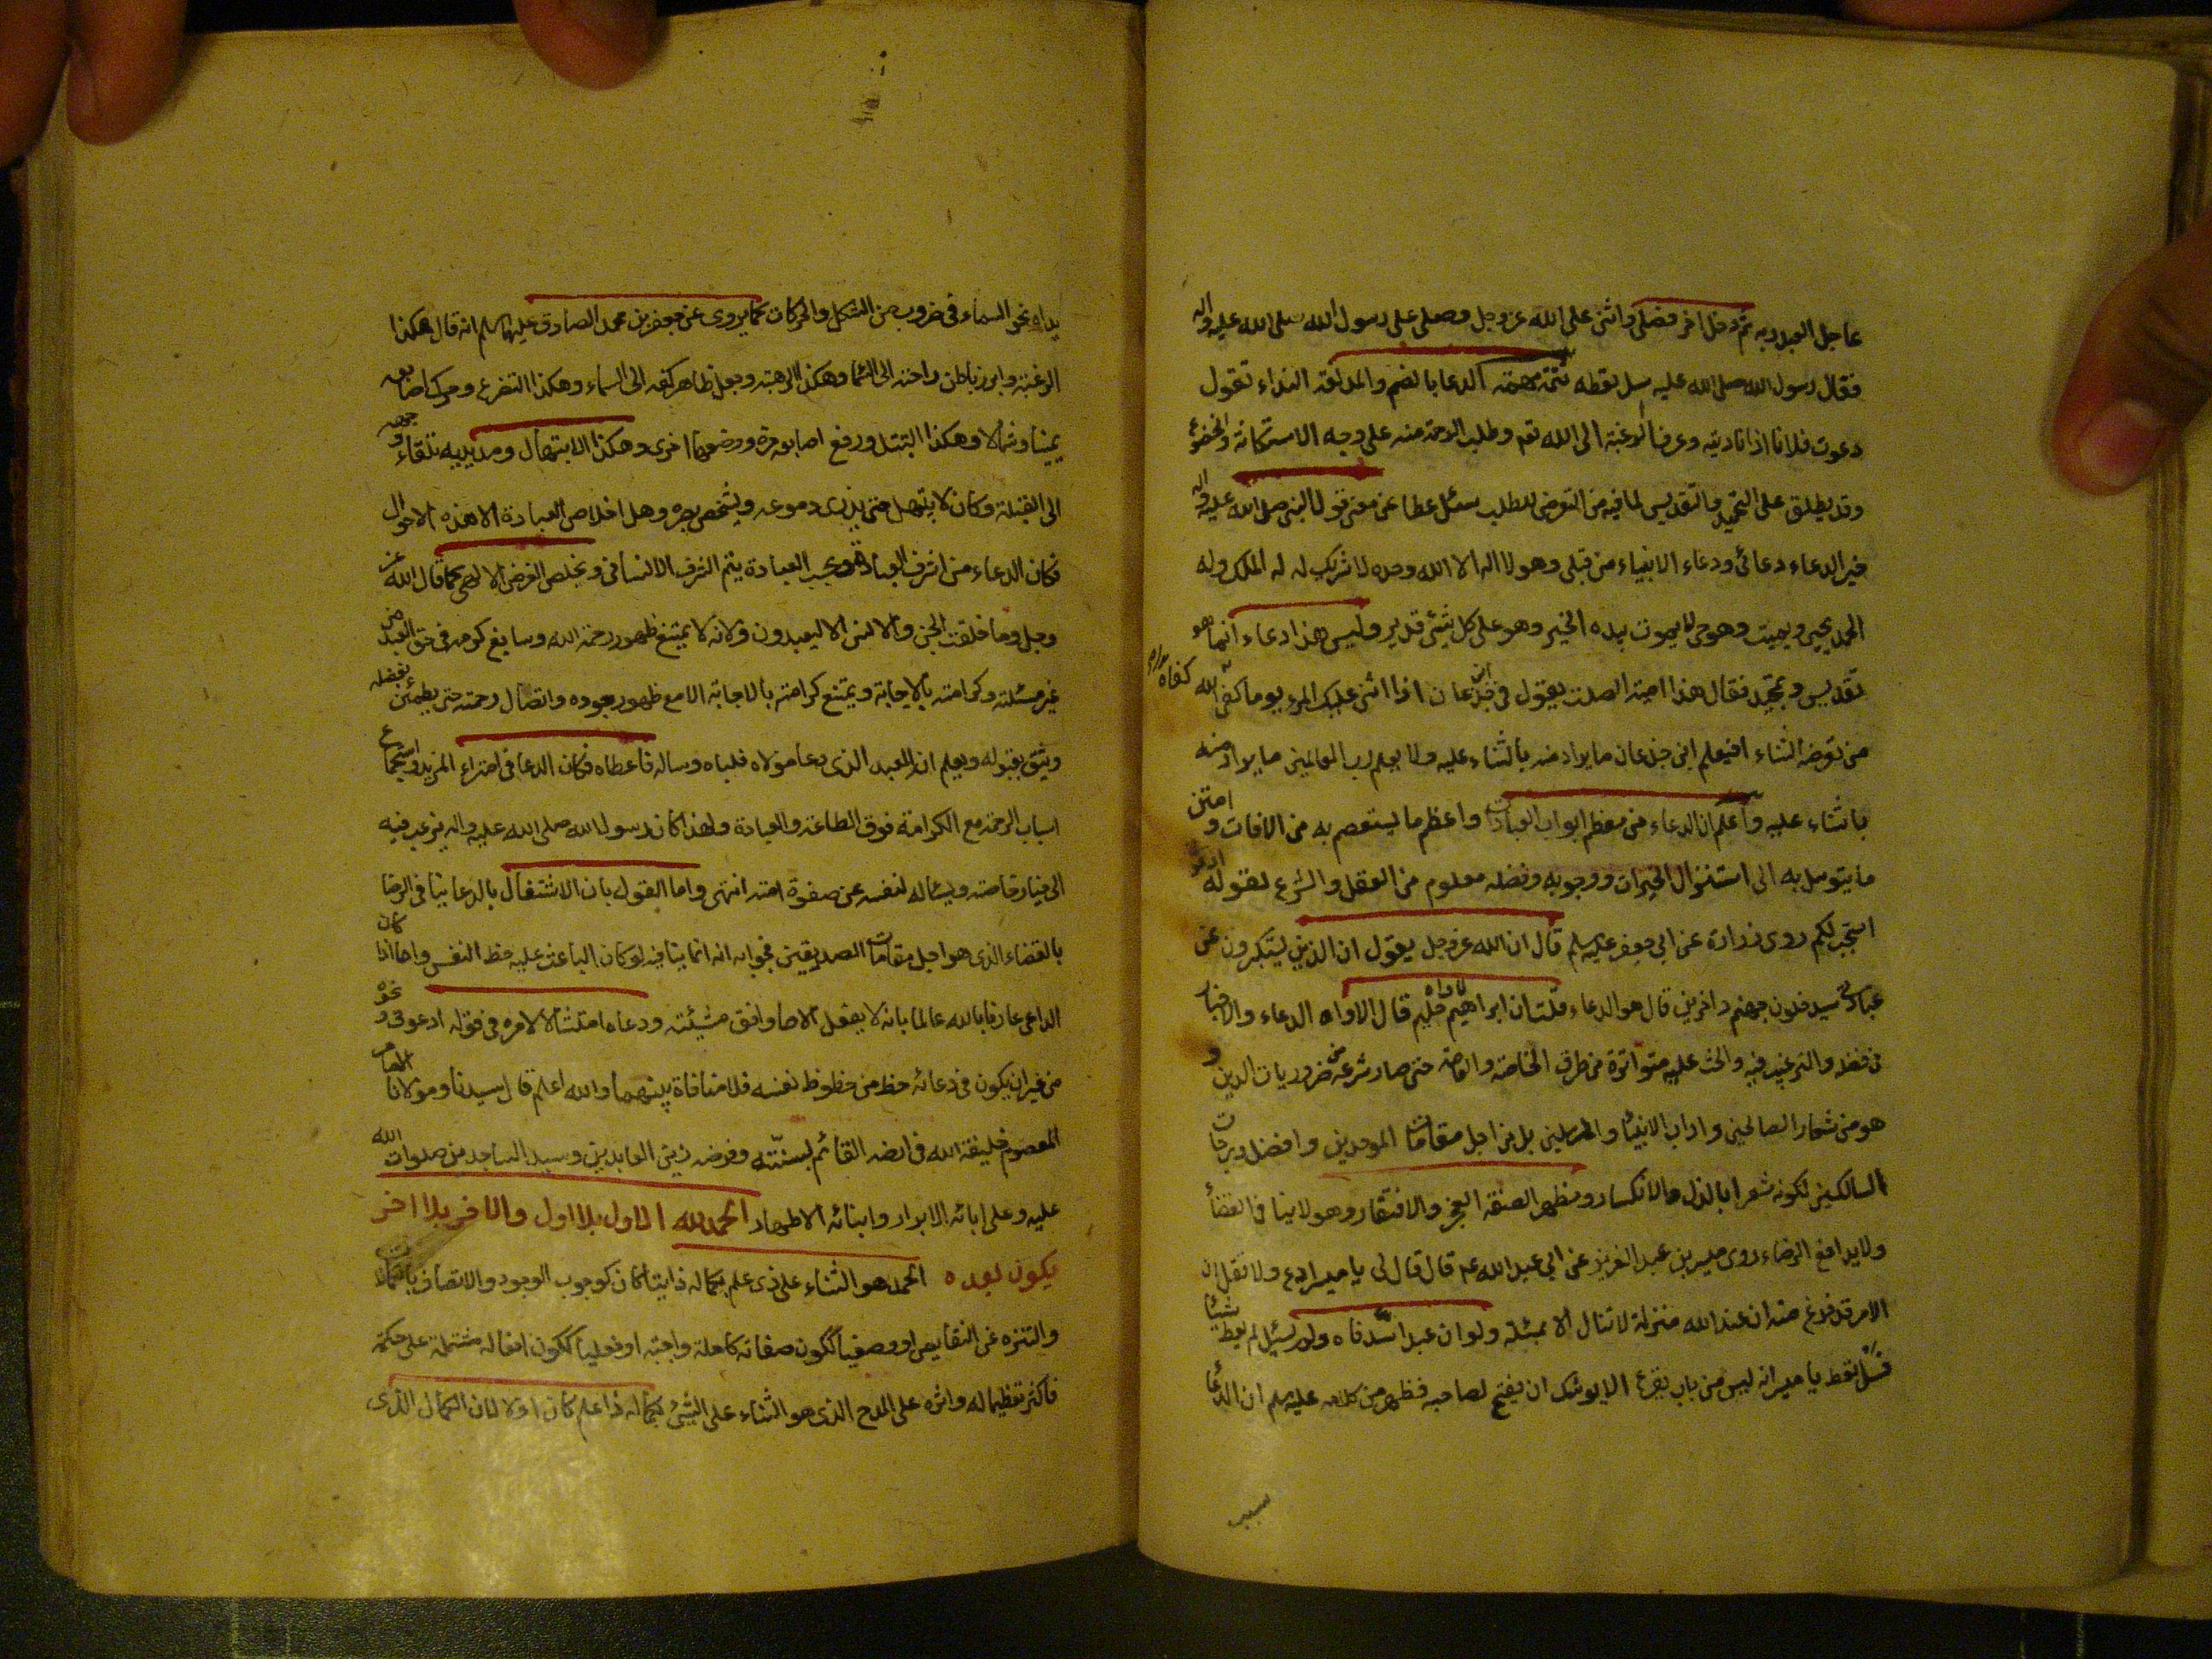 عاجل العبد ربه ثم دخل اخر فصلى واثنى على الله عز وجل وصلى على رسول الله صلى الله عليه واله
فقال رسول الله صلى الله عليه سل تعطه تتمة مهمة الدعا بالضم والمد لغة النداء تقول
دعوت فلانا اذا ناديته وعرفا الرغبة الى الله تعم وطلب الرحمة منه على وجه الاستكانة والخضوع
وقد يطلق على التحميد والتقديس لما فيه من التعرض للطلب سئل عطا عن معنى قول النبي صلى الله عليه واله
خير الدعاء دعائي ودعاء الانبياء من قبلي وهو لا اله الا الله وحده لا شريك له له الملك وله
الحمد يحيي ويميت وهو حي لا يموت بيده الخير وهو على كل شيء قدير وليس هذا دعاء انما هو
تقديس وتمجيد فقال هذا امية ابن الصلت يقول في جذعان اذا اثنى عليك المرء يوما كفاه
من تعرضه الثناء افيعلم ابن جذعان ما يراد منه بالثناء عليه ولا يعلم رب العالمين ما يراد منه
بالثناء عليه واعلم ان الدعاء من معظم ابواب العبادات واعظم ما يستعصم به من الافات وامتن
ما يتوسل به الى استنزال الخيرات ووجوبه وفضله معلوم من العقل والشرع لقوله ادعوني
استجب لكم روى زرارة عن ابي جعفر عليه سلم قال ان الله عز وجل يقول ان الذين يستكبرون عن
عبادتي سيدخلون جهنم داخرين قال هو الدعاء قلت ان ابراهيم لاواه حليم قال الاواه الدعاء والاخبار
في فضله والترغيب فيه والحث عليه متواترة من طرق الخاصة والعامة حتى صار شرعه من ضروريات الدين و
هو من شعار الصالحين واداب الانبياء والمرسلين بل من اجل مقامات الموحدين وافضل درجات
السالكين لكونه مشعرا بالذل والانكسار ومظهر الصفة العجز والافتقار وهو لا ينافي القضاء
ولا يدافع الرضاء روى ميسر بن عبد العزيز عن ابي عبد الله عم قال قال لي يا ميسر ادع ولا تقل ان
الامر قد فرغ منه ان عند الله منزلة لا تنال الا بمسئلة ولو ان عبدا سد فاه ولم يسئل لم يعط شيئا
فسل تعط يا ميسر انه ليس من باب يقرع الا يوشك ان يفتح لصاحبه فظهر من كلامه عليه سلم ان الدعا
يداه نحو السماء في ضروب من الشكل والحركات كما يروى عن جعفر بن محمد الصادق عليهما سلم انه قال هكذا
الرغبة وابرز باطن راحته الى السما وهكذا الرهبة وجعل ظاهر كفه الى السماء وهكذا التضرع وحرك اصابعه
يمينا وشمالا وهكذا التبتل ورفع اصابعه مرة ووضعها اخرى وهكذا الابتهال ومد يديه تلقاء وجهه
الى القبلة وكان لا يبتهل حتى يذرى دموعه ويشخص بصره وهل اخلاص العبادة الا هذه الاحوال
فكان الدعاء من اشرف العبادة وبحسب العبادة يتم الشرف الانساني ويخلص الغرض الالهي كما قال الله عز
وجل وما خلقت الجن والانس الا ليعبدون ولانه لا يمتنع ظهور رحمة الله وسايغ كرمه في حق العبد من
غير مسئلته وكرامته بالاجابة ويمتنع كرامته بالاجابة الا مع ظهور جوده واتصال رحمته حتى يطمئن بفضله
ويثق بقبوله ويعلم انه العبد الذي دعا مولاه فلباه وساله فاعطاه فكان الدعا في امتراء المزيد واستجماع
اسباب الرحمة مع الكرامة فوق الطاعة والعبادة ولهذا كان رسول الله صلى الله عليه واله يرغب فيه
الى خيار خاصته ويسئاله لنفسه عن صفوة امته انتهى واما القول بان الاشتغال بالدعا ينافي الرضا
بالقضاء الذي هو اجل مقامات الصديقين فجوابه انه انما ينافيه لو كان الباعث عليه حظ النفس واما اذا كان
الداعي عارفا بالله عالما بانه لا يفعل الا ما وافق مشيئته ودعاه امتثالا لامره في قوله ادعوني ونحوه
من غير ان يكون في دعائه حظ من حظوظ نفسه فلا منافاة بينهما والله اعلم قال سيدنا ومولانا الامام
المعصوم خليفة الله في ارضه القائم بسنته وفرضه زين العابدين وسيد الساجدين صلوات الله
عليه وعلى ابائه الابرار وابنائه الاطهار الحمد لله الاول بلا اول والاخر بلا اخر
يكون بعده الحمد هو الثناء على ذي علم بكماله ذاتيا كان كوجوب الوجود والاتصاف بالكمالات
والتنزه عن النقايص او وصفيا ككون صفاته كاملة واجبة او فعليا ككون افعاله مشتملة على حكمة
فاكثر تعظيما له واثره على المدح الذي هو الثناء على الشيء بكماله ذا علم كان او لا لان الكمال الذي